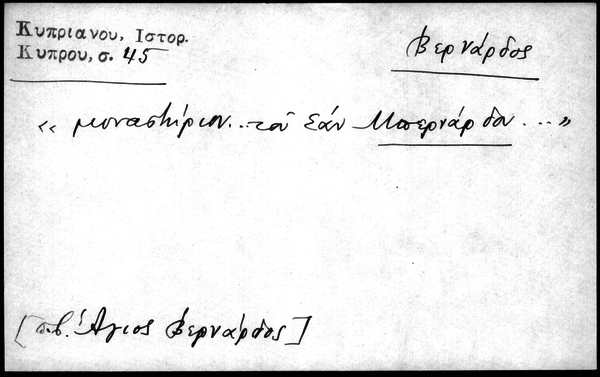 Κυπριανου, Ιστορ.
Κυπρου, σ. 45
Βερνάρδος
« μοναστήριον...τοῦ Σάν Μπερνάρδου ... »
[π.β. Ἅγιος Βερνάρδος]